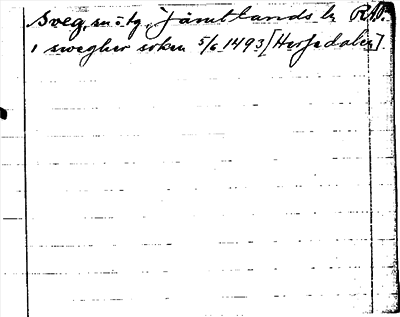 Sveg, sn o. tg, Jämtlands ln RAp.
i swegher soken 5/6 1493 [Herjedalen].